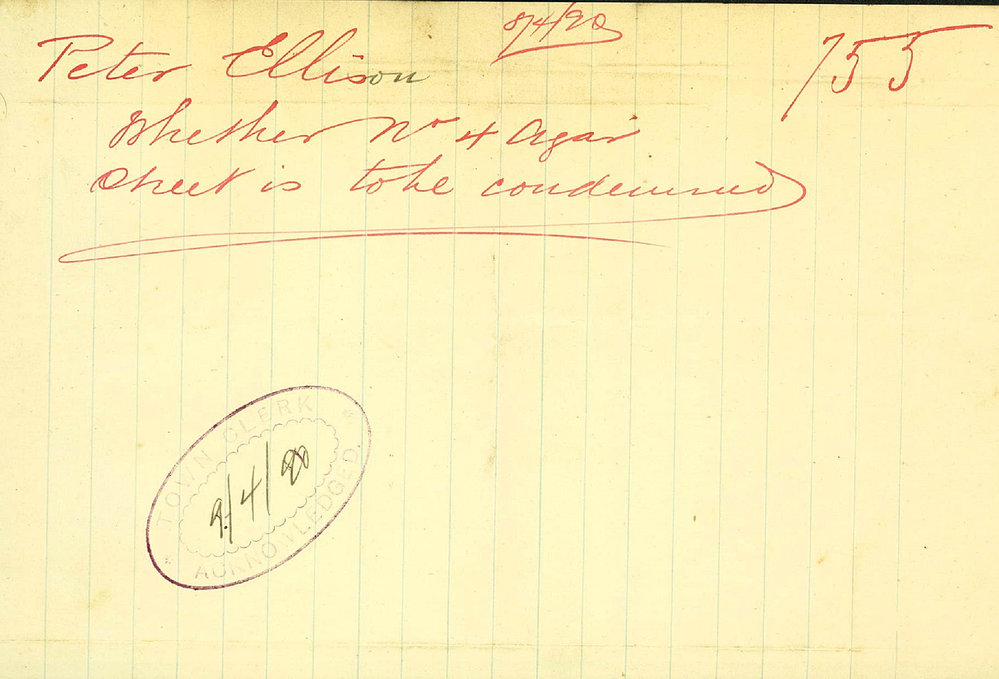 8/4/90
755
Peter Ellison
Whether No 4 Agar
Street is to be condemned
TOWN CLERK
9/4/90
ACKNOWLEDGED.